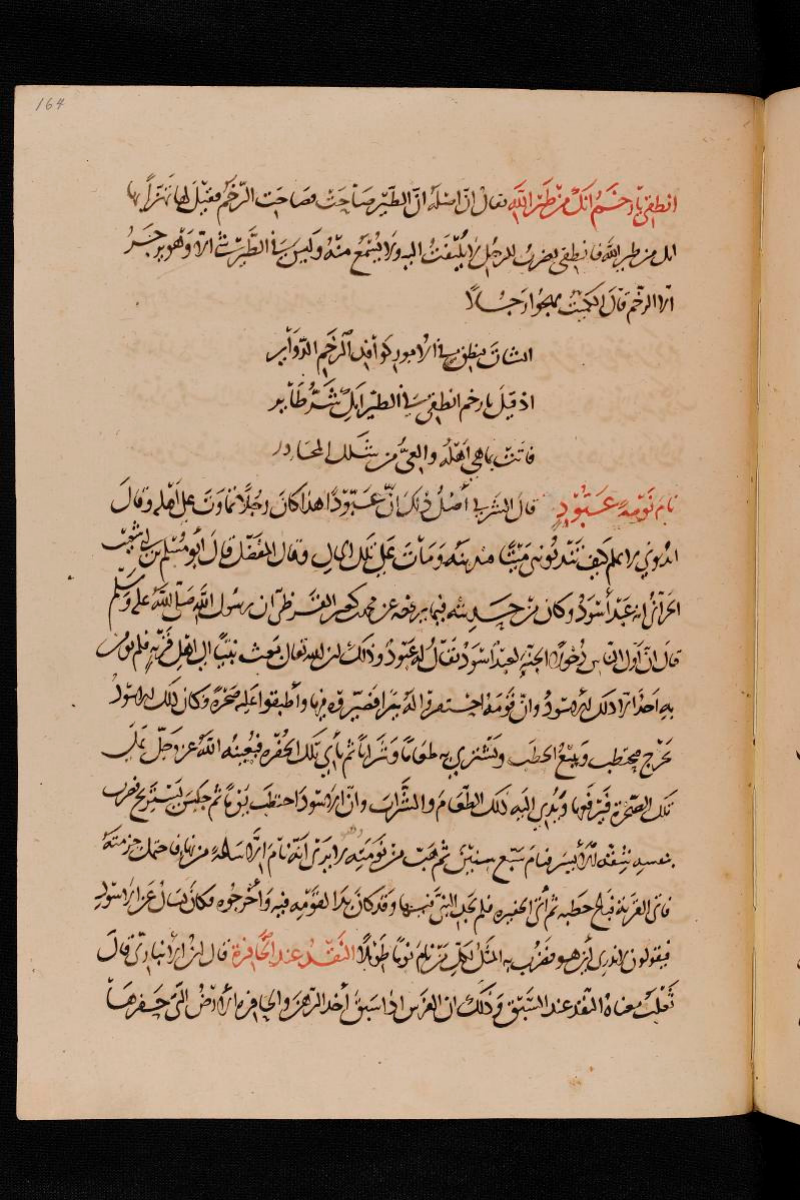 164
انطقي يا رخم انك من طير الله يقال ان اصله ان الطير صاحت فصاحت الرخم فقيل لها تهزأ بها
انك من طير الله فانطقي يضرب للرجل لا يلتفت اليه ولا يسمع منه وليس في الطير شئ الا وهو يزجر
الا الرخم قال الكميت يهجوا رجلا
انشات تنطق في الامور كوافد الرخم الدواير
اذ قيل يا رخم انطقي في الطير انك شر طاير
فاتت بما هي اهله والعي من شلل المحاور
نام نومة عبود قال الشرقي أصل ذلك ان عبودا هذا كان رجلا تماوت على اهله وقال
اندبوني لاعلم كيف تندبونني ميتا فندبنه ومات على تلك الحال وقال المفضل قال أبو مسلم بن ابي شعيب
الحراني انه عبد أسود وكان من حديثه فيما يرفعه عن محمد بن كعب القرظي ان رسول الله صلى الله عليه وسلم
قال ان أول الناس دخولا الجنة لعبد أسود يقال له عبود وذلك ان الله تعالى بعث نبيا الى اهل قرية فلم يومن
به احد الا ذلك الاسود وان قومه احتفروا له بيرا فصيروه فيها وأطبقوا عليه صخرة وكان ذلك الاسود
يخرج فيحتطب ويبيع الحطب ويشتري به طعاما وشرابا ثم يأتي تلك الحفرة فيعينه الله عز وجل على
تلك الصخرة فيرفعها ويدلي اليه ذلك الطعام والشراب وان الاسود احتطب يوما ثم جلس ليستريح فضرب
بنفسه شقه الأيسر فنام سبع سنين ثم هب من نومته لا يرى انه نام الا ساعة من نهار فاحتمل حزمته
فاتى القرية فباع حطبه ثم أتى الحفيره فلم يجد النبي فيها وقد كان بدا لقومه فيه وأخرجوه فكان يسال عن الاسود
فيقولون لا ندري اين هو فضرب به المثل لكل من نام نوما طويلا النقد عند الحافرة قال ابن الانباري قال
ثعلب معناه النقد عند السبق وذلك ان الفرس اذا سبق أخذ الرهن والحافره الارض التي حفرها